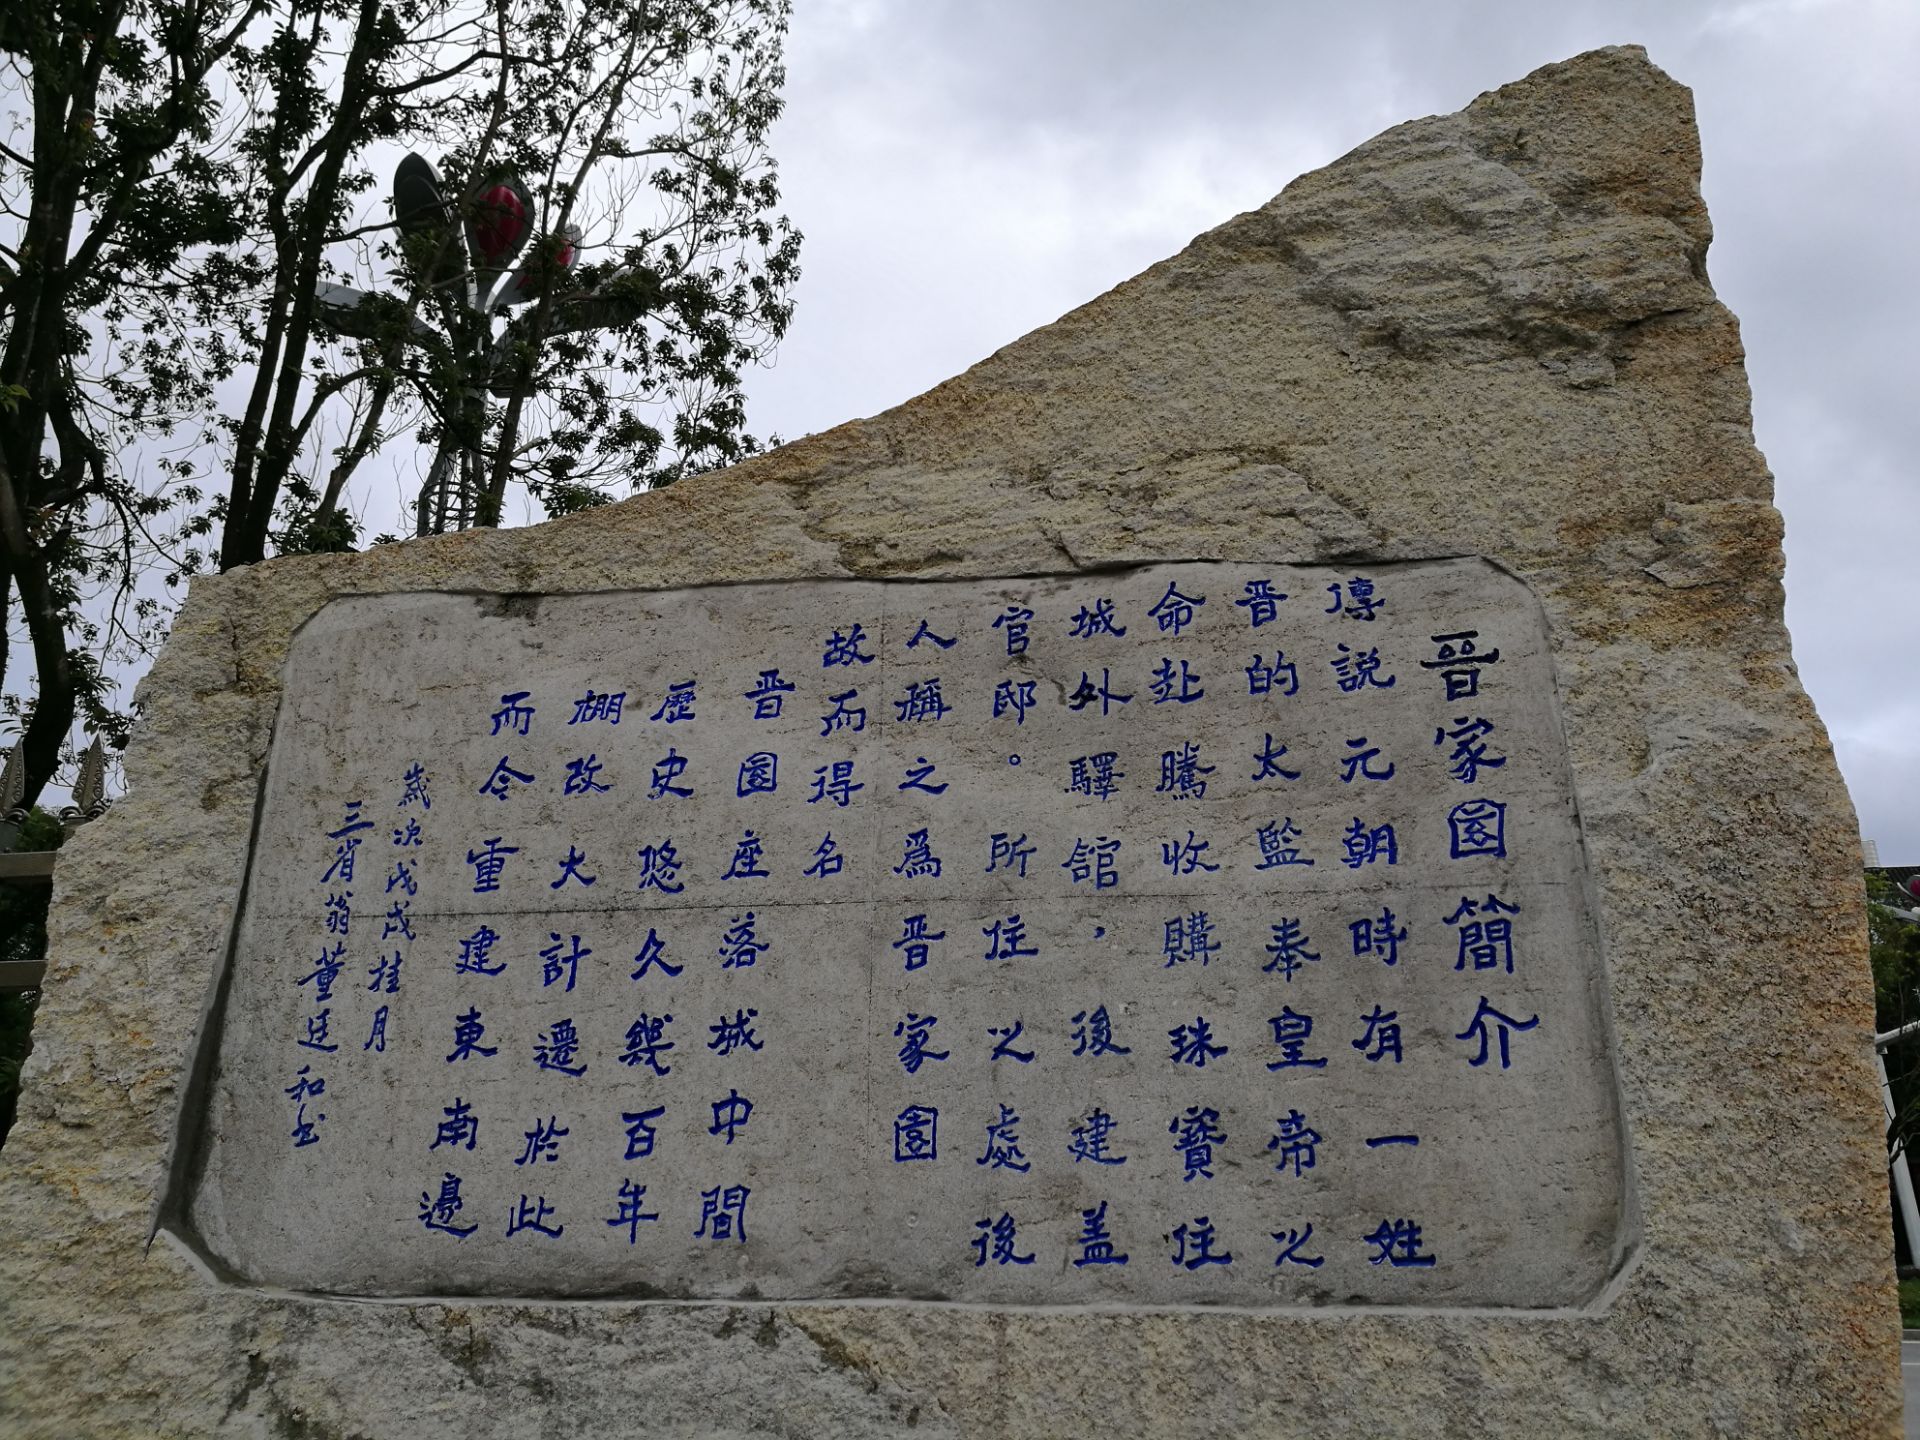 晋家園簡介
傳説元朝時有一姓
晋的太監奉皇帝以
命赴騰收購珠寳住
城外驛舘，後建盖
官邸。所住以處後
人稱之爲晋家園
故而得名
晋園座落城中間
歷史悠久幾百年
棚改大計遷於此
而今重建東南邊
歲次戊戌桂月
三省翁董廷和书